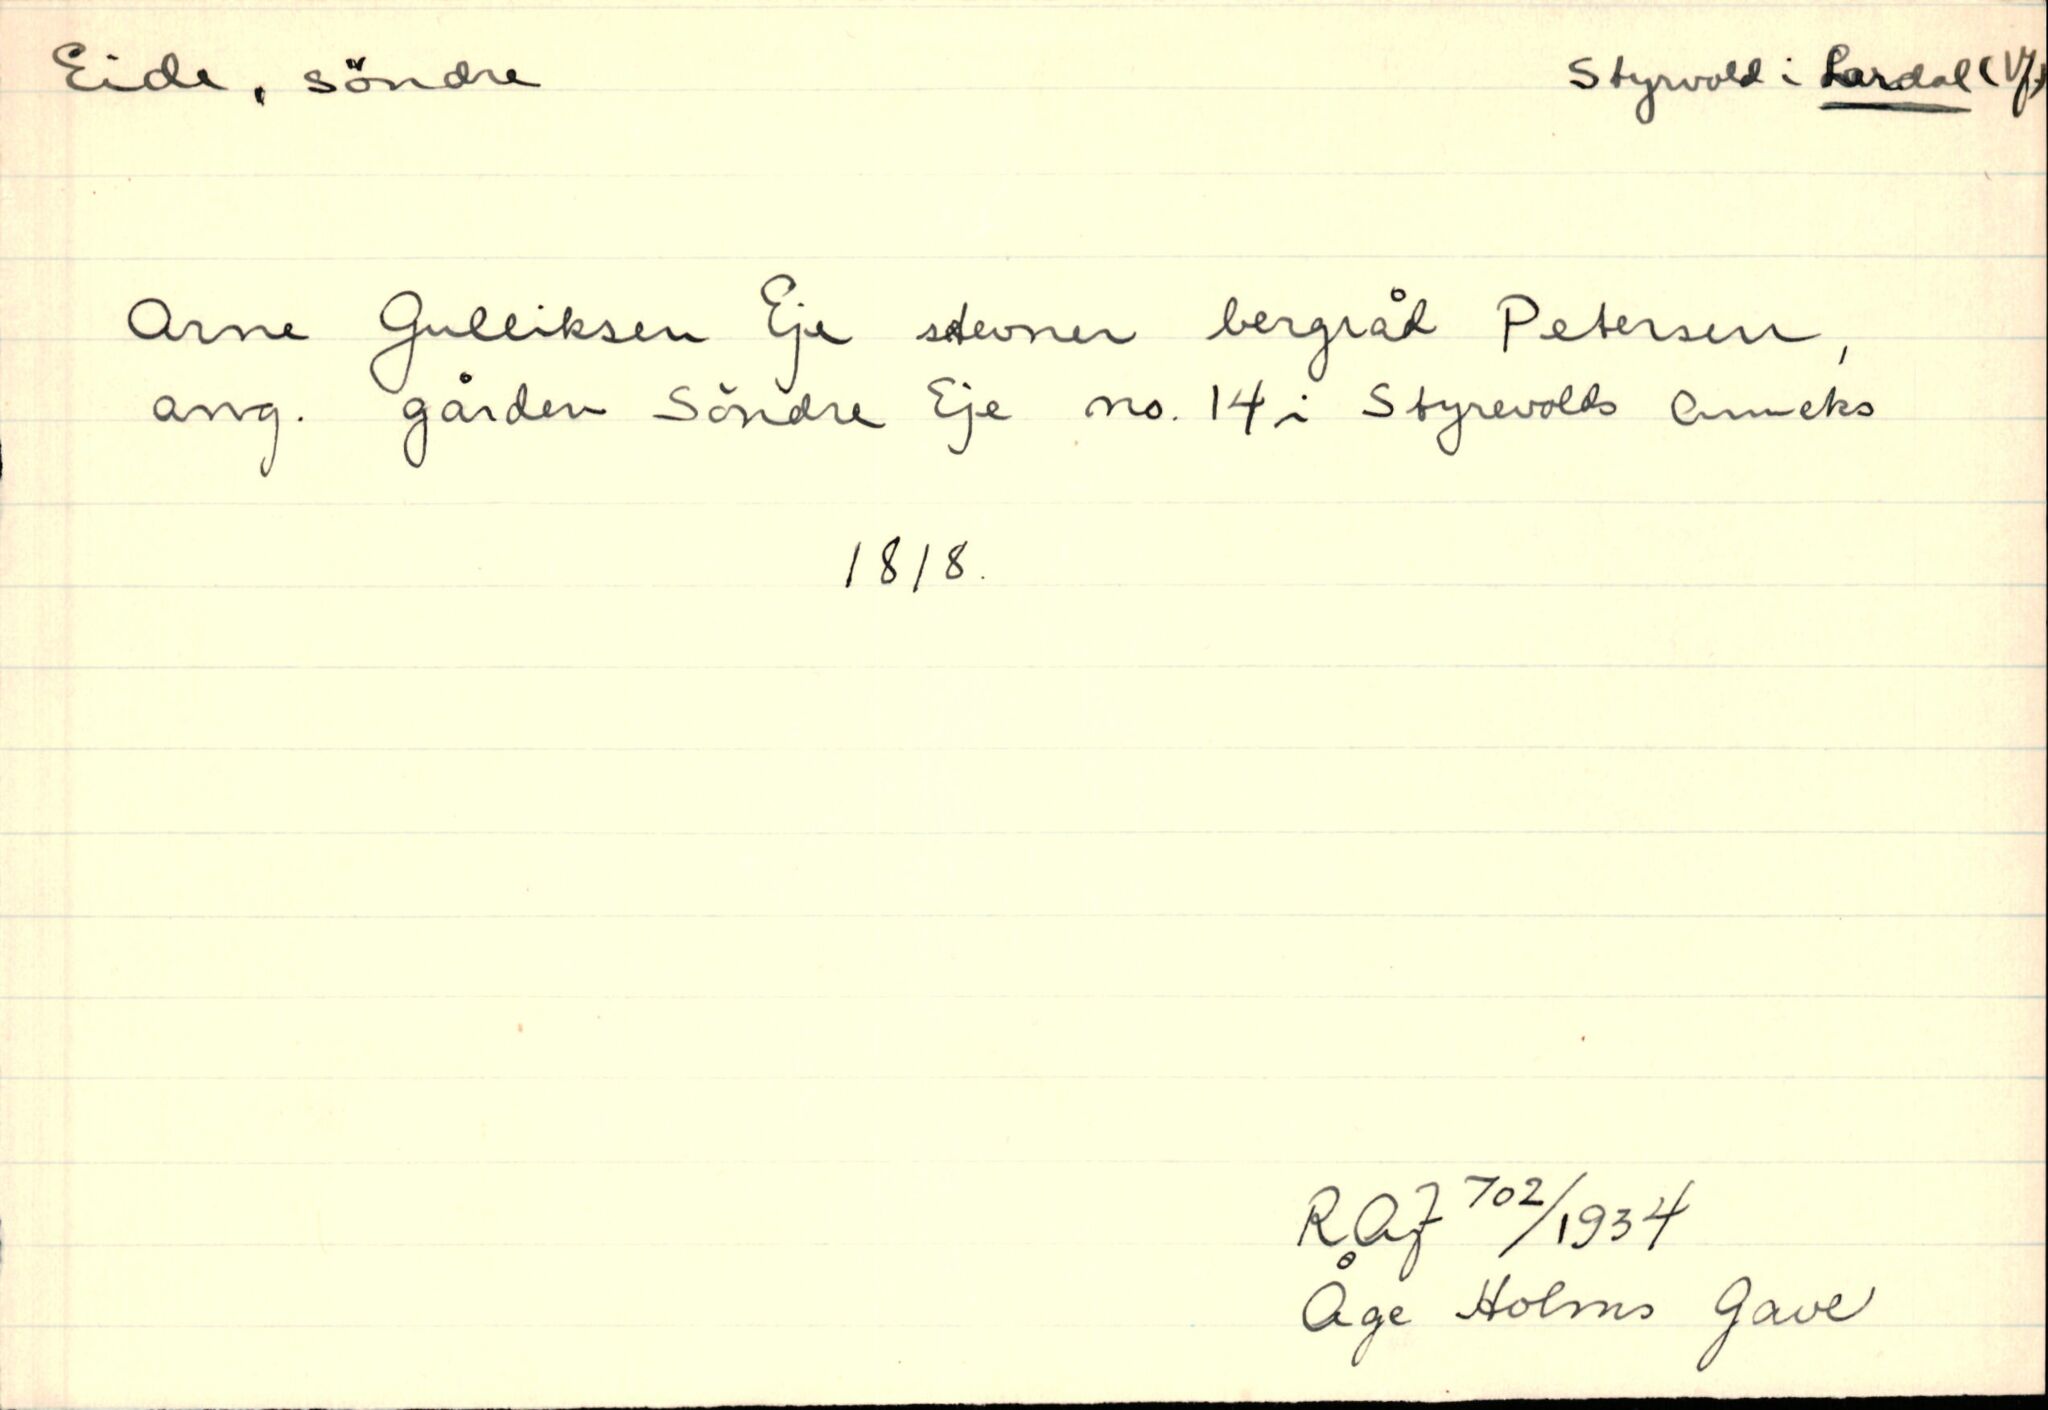 Eide, söndre
Styrvold i Lardal (Vf.)
Arne Gulliksen Eje stevner bergråd Petersen,
ang. gården Söndre Eje no. 14 i Styrevolds Anneks
1818.
RAJ 702/1934
Åge Holms Gave